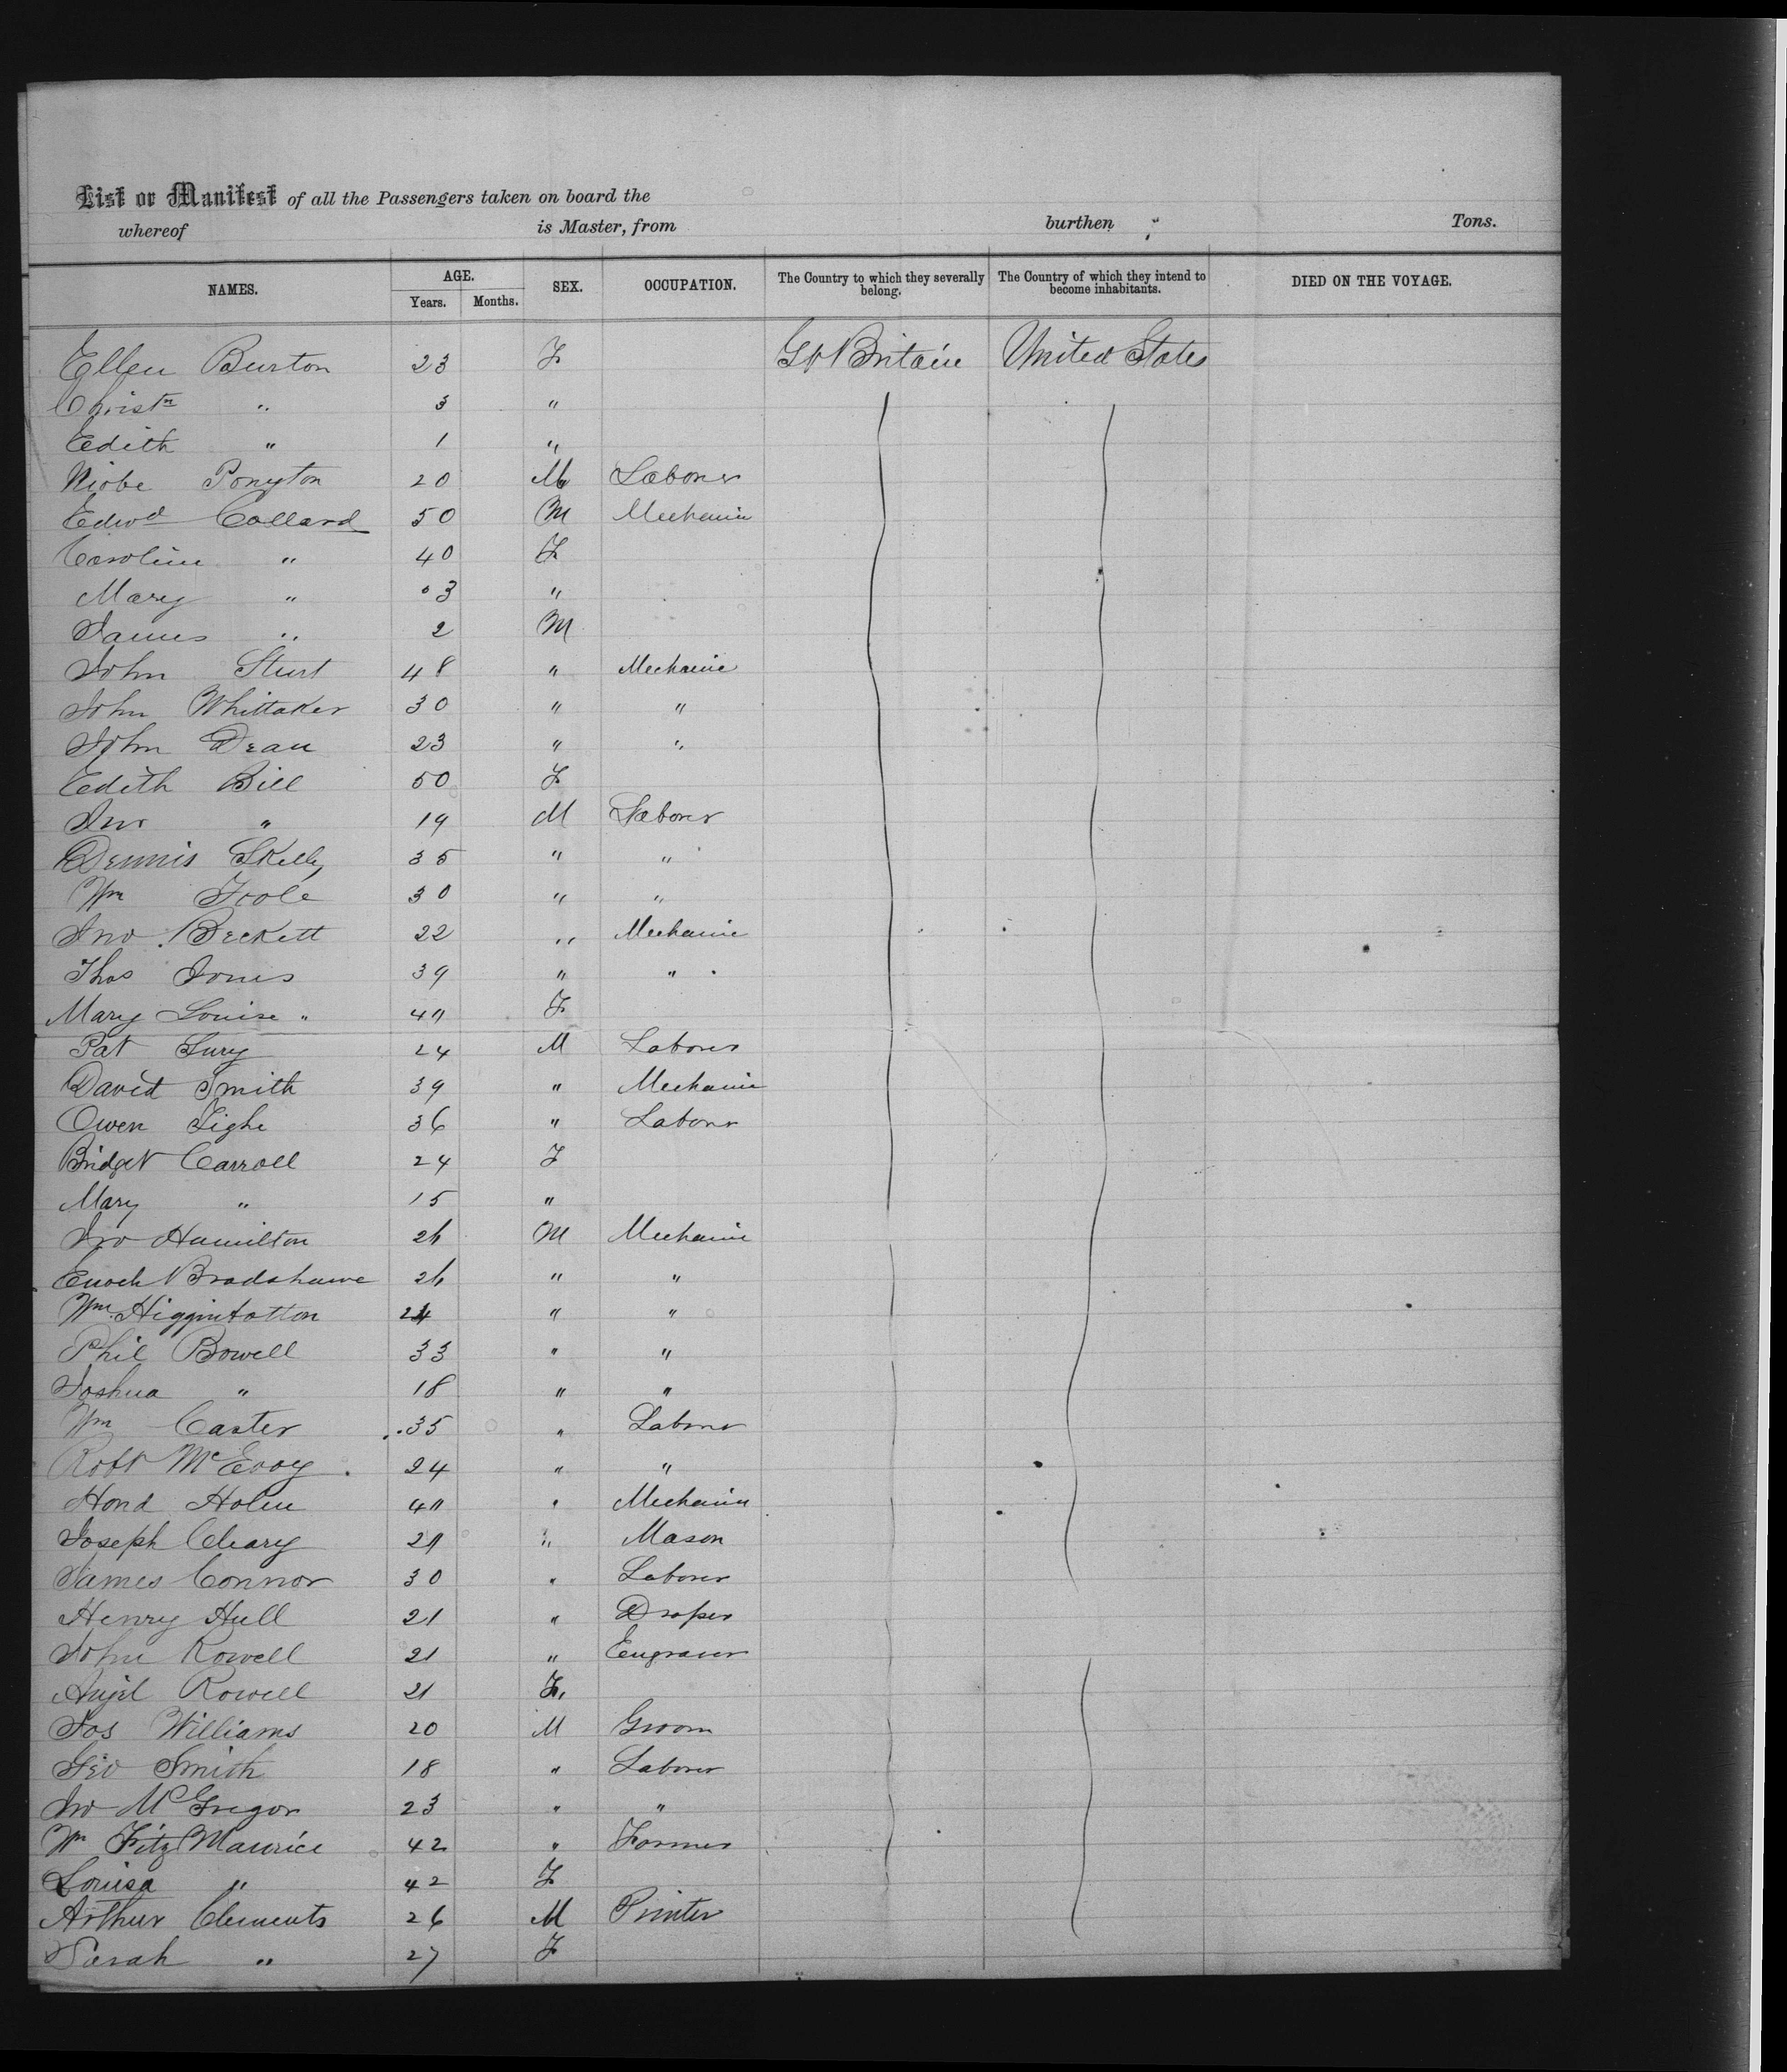 List or Manifest of all the Passengers taken on board the
whereof is Master, from burthen Tons.
NAMES. AGE. Years. Months. SEX. OCCUPATION. The Country to which they severally belong. The Country of which they intend to become inhabitants. DIED ON THE VOYAGE.
Ellen Burton 23 F Gt Britain United States
Christn " 3 "
Edith " 1 "
Niobe Ponyton 20 M Laborer
Edwd Collard 50 M Mechanic
Caroline " 40 F
Mary " 3 "
James " 2 M
John Sturt 48 " Mechanic
John Whittaker 30 " "
John Dean 23 " "
Edith Bill 50 F
Jno " 19 M Laborer
Dennis Skelly 35 " "
Wm Toole 30 " "
Jno Beckett 22 " Mechanic
Thos Jones 39 " "
Mary Louise " 40 F
Pat Lury 24 M Laborer
David Smith 39 " Mechanic
Owen Tighe 36 " Laborer
Bridget Carroll 24 F
Mary " 15 "
Jno Hamilton 26 M Mechanic
Enoch Bradshawe 26 " "
Wm Higginbotton 24 " "
Phil Bowell 33 " "
Joshua " 18 " "
Wm Caster 35 " Laborer
Robt McEvoy 24 " "
Hond 40 " Mechanic
Joseph Cleary " Mason
James Connor 30 " Laborer
Henry Hull 21 " Draper
John Rowell 21 " Engraver
Rowell 21 F
Jos Williams 20 M Groom
Geo Smith 18 " Laborer
Jno McGregor 23 " "
Wm FitzMaurice 42 " Farmer
Louisa " 42 F
Arthur Clements 26 M Printer
Sarah " 27 F